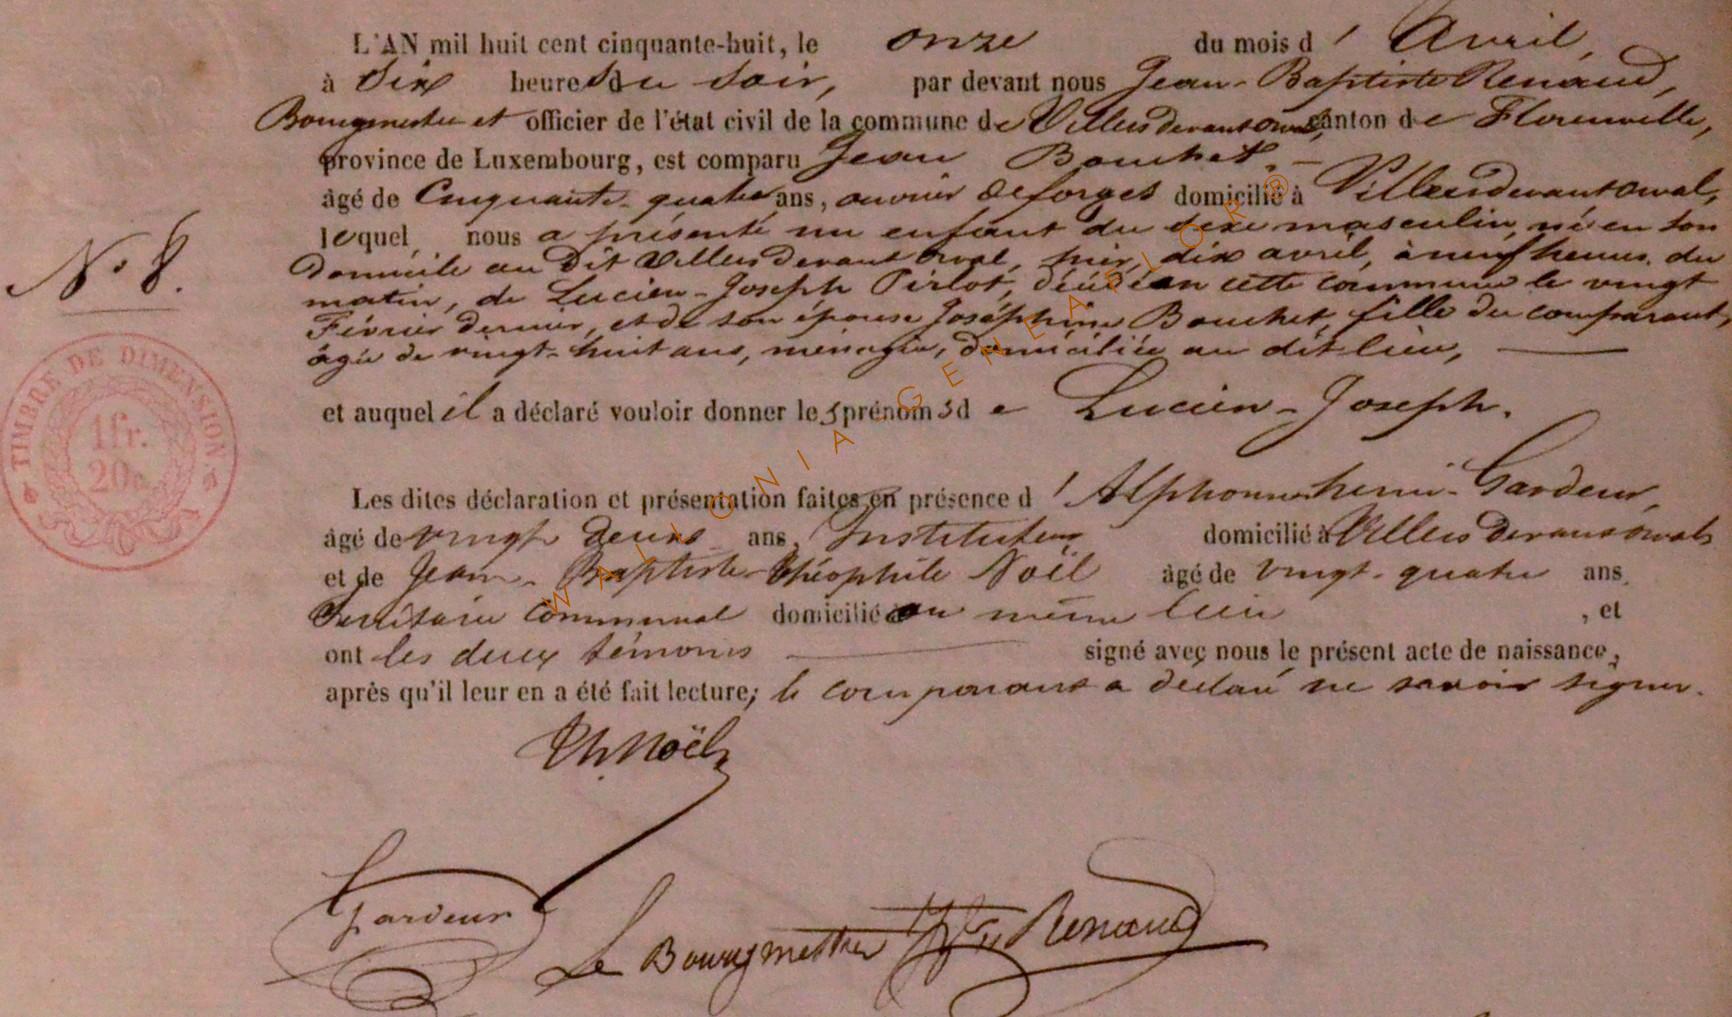 L'AN mil huit cent cinquante-huit, le onze du mois d'Avril,
à Six heures du Soir, par devant nous Jean-Baptiste Renaud,
Bourgmestre et officier de l'état civil de la commune de Villers devant orval, canton de Florenville,
province de Luxembourg, est comparu Jean Bouchet.
âgé de Cinquante-quatre ans, ouvrier de forges domicilié à Villers devant orval,
lequel nous a présenté un enfant du sexe masculin, né en son
domicile au dit Villers devant orval, hier, dix avril, à neuf heures du
matin, de Lucien-Joseph Pirlot, décédé en cette commune le vingt
Février dernier, et de son épouse Joséphine Bouchet, fille du comparant,
âgée de vingt-huit ans, ménagère, domiciliée au dit lieu,
et auquel il a déclaré vouloir donner les prénoms de Lucien-Joseph.
N° 8.
TIMBRE DE DIMENSION.
1fr.
20c.
Les dites déclaration et présentation faites en présence d'Alphonse henri-Gardeur,
âgé de vingt deux ans, Instituteur domicilié à Villers devant orval
et de Jean-Baptiste-Théophile Noël âgé de vingt-quatre ans,
Secrétaire Communal domicilié au même lieu, et
ont les deux témoins signé avec nous le présent acte de naissance,
après qu'il leur en a été fait lecture; le comparant a déclaré ne savoir signer.
Th. Noël
Gardeur
Le Bourgmestre Renaud
WALLONIA GENEALOGOR ®